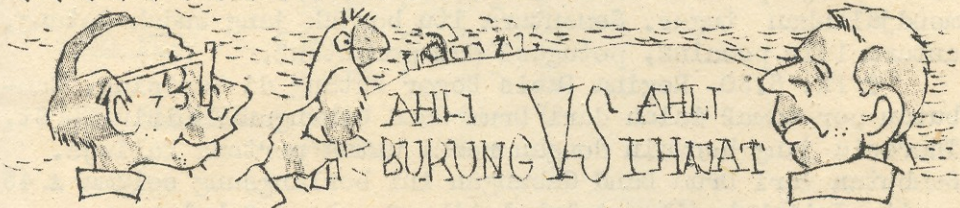 AHLI
BURUNG
VS
AHLI
IHAJAT